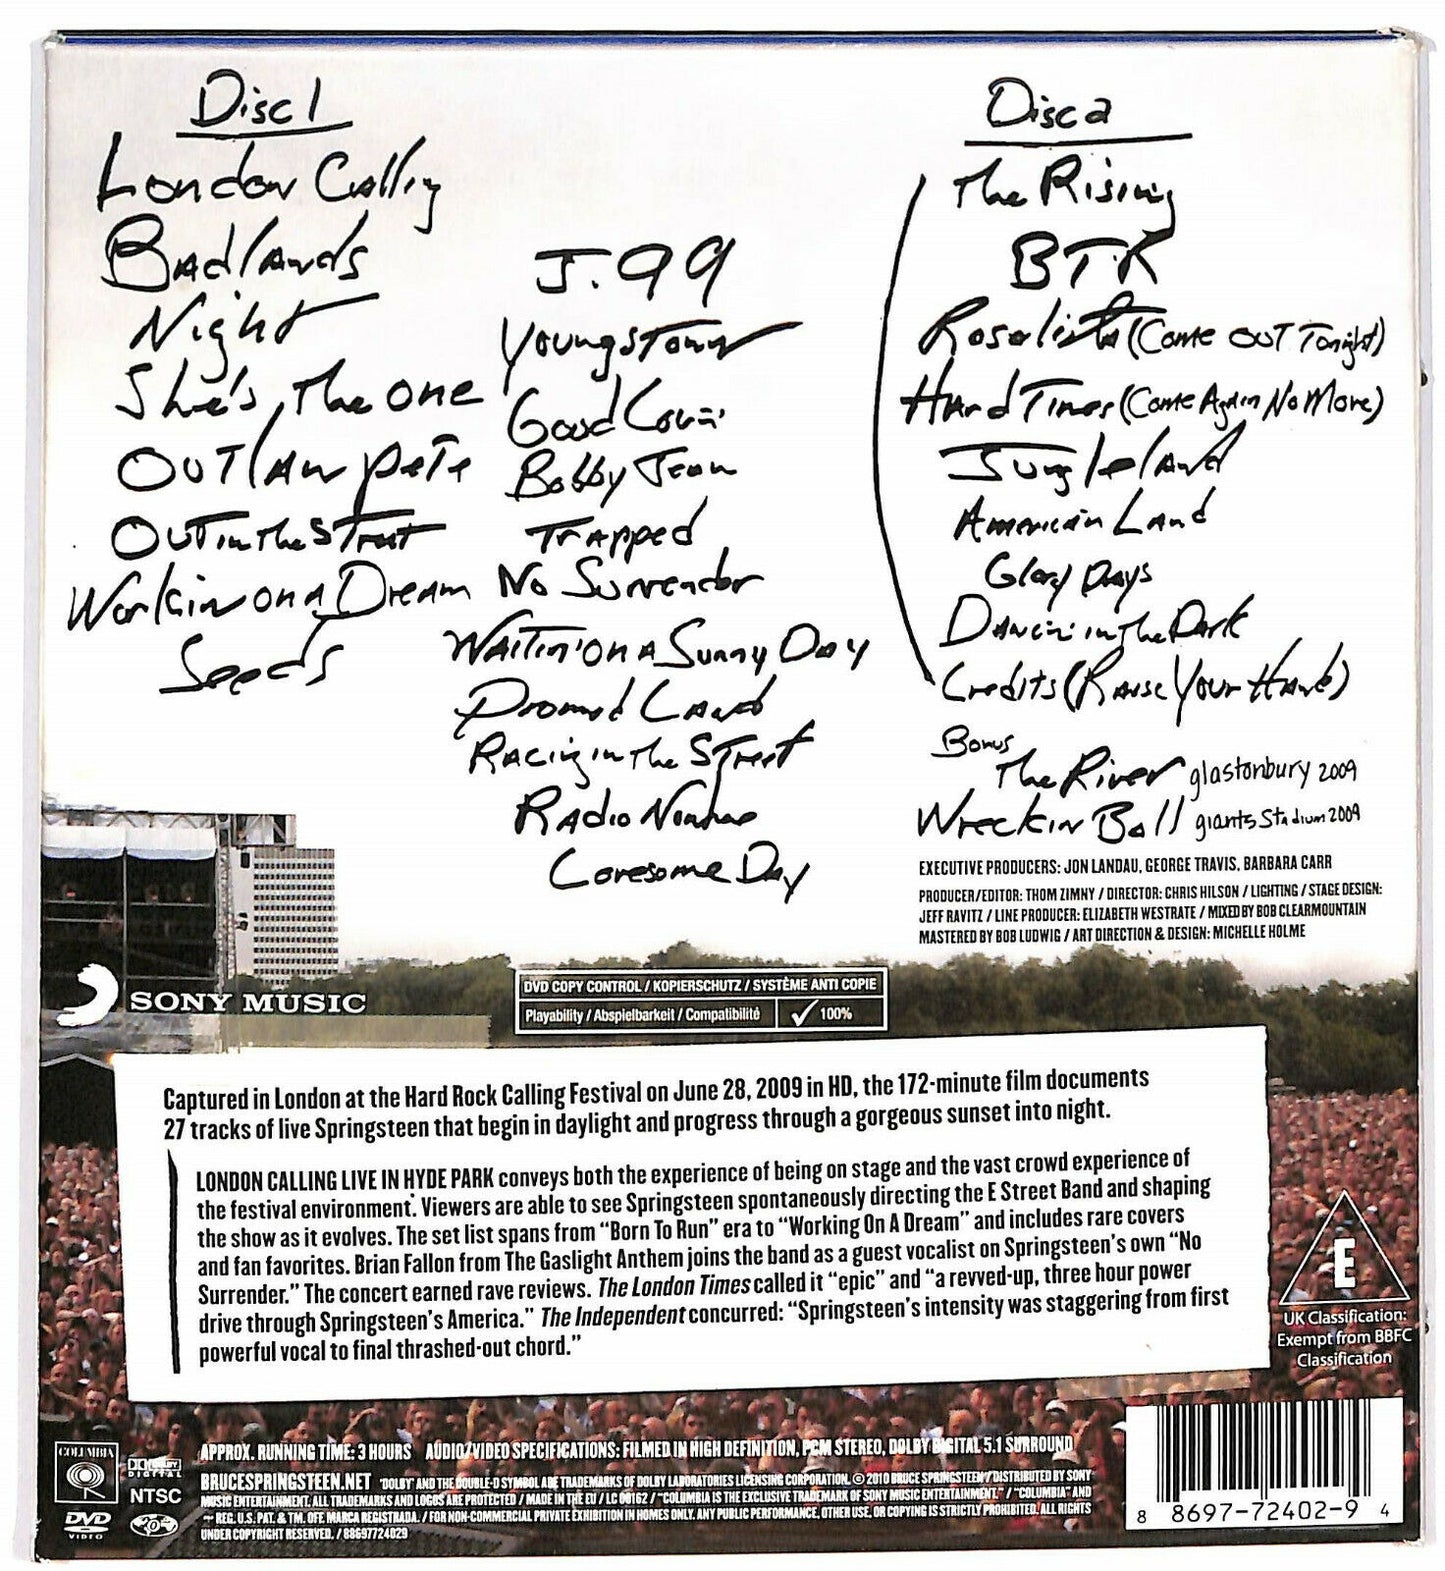 Disc 1
London Calling
Badlands
Night
She's the one
Outlaw pete
Out in the Street
Workin on a Dream
Seeds
J. 99
Youngstown
Good Lovin'
Bobby Jean
Trapped
No Surrender
Waitin' on a Sunny Day
Promised Land
Racing in the Street
Radio Nowhere
Lonesome Day
Disc 2
The Rising
BTR
Rosalita (Come OUT Tonight)
Hard Times (Come Again No More)
Jungleland
American Land
Glory Days
Dancin' in the Dark
Credits (Raise Your Hand)
Bonus
The River glastonbury 2009
Wreckin Ball giants Stadium 2009
EXECUTIVE PRODUCERS: JON LANDAU, GEORGE TRAVIS, BARBARA CARR
PRODUCER/EDITOR: THOM ZIMNY / DIRECTOR: CHRIS HILSON / LIGHTING / STAGE DESIGN:
JEFF RAVITZ / LINE PRODUCER: ELIZABETH WESTRATE / MIXED BY BOB CLEARMOUNTAIN
MASTERED BY BOB LUDWIG / ART DIRECTION & DESIGN: MICHELLE HOLME
SONY MUSIC
DVD COPY CONTROL / KOPIERSCHUTZ / SYSTÈME ANTI COPIE
Playability / Abspielbarkeit / Compatibilité ✓ 100%
Captured in London at the Hard Rock Calling Festival on June 28, 2009 in HD, the 172-minute film documents
27 tracks of live Springsteen that begin in daylight and progress through a gorgeous sunset into night.
LONDON CALLING LIVE IN HYDE PARK conveys both the experience of being on stage and the vast crowd experience of
the festival environment. Viewers are able to see Springsteen spontaneously directing the E Street Band and shaping
the show as it evolves. The set list spans from "Born To Run" era to "Working On A Dream" and includes rare covers
and fan favorites. Brian Fallon from The Gaslight Anthem joins the band as a guest vocalist on Springsteen's own "No
Surrender." The concert earned rave reviews. The London Times called it "epic" and "a revved-up, three hour power
drive through Springsteen's America." The Independent concurred: "Springsteen's intensity was staggering from first
powerful vocal to final thrashed-out chord."
E
UK Classification:
Exempt from BBFC
Classification
COLUMBIA
DOLBY
DIGITAL
NTSC
DVD
VIDEO
0
APPROX. RUNNING TIME: 3 HOURS AUDIO/VIDEO SPECIFICATIONS: FILMED IN HIGH DEFINITION, PCM STEREO, DOLBY DIGITAL 5.1 SURROUND
BRUCESPRINGSTEEN.NET "DOLBY AND THE DOUBLE-D SYMBOL ARE TRADEMARKS OF DOLBY LABORATORIES LICENSING CORPORATION. © 2010 BRUCE SPRINGSTEEN / DISTRIBUTED BY SONY
MUSIC ENTERTAINMENT. ALL TRADEMARKS AND LOGOS ARE PROTECTED / MADE IN THE EU / LC 00162 / "COLUMBIA IS THE EXCLUSIVE TRADEMARK OF SONY MUSIC ENTERTAINMENT." / "COLUMBIA" AND
REG. U.S. PAT. & TM. OFF. MARCA REGISTRADA. / FOR NON-COMMERCIAL PRIVATE EXHIBITION IN HOMES ONLY. ANY PUBLIC PERFORMANCE, OTHER USE, OR COPYING IS STRICTLY PROHIBITED. ALL RIGHTS
UNDER COPYRIGHT RESERVED. / 88697724029
8 8697-72402-9 4